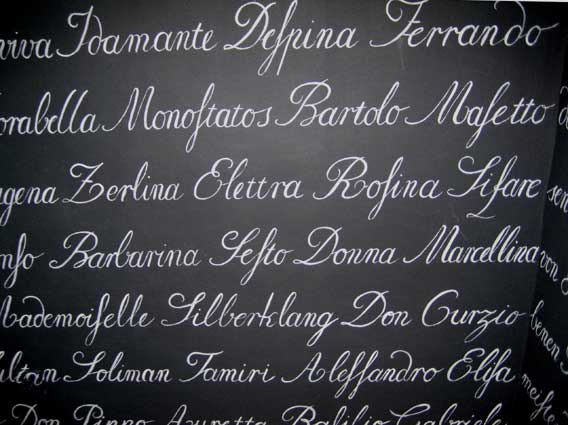 viva Idamante Deſpina Ferrando
orabella Monoſtatos Bartolo Maſetto
agena Zerlina Elettra Roſina Sifare
onſo Barbarina Seſto Donna Marcellina
Mademoiſelle Silberklang Don Curzio
ultan Soliman Tamiri Aleſſandro Eliſa
Don Pippo
sen
von
benen
meiſte